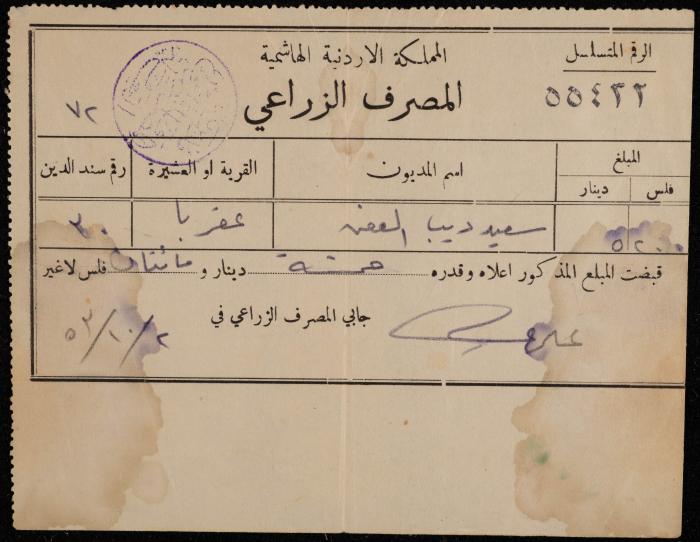 المملكة الاردنية الهاشمية
الرقم المتسلسل
المصرف الزراعي
٥٥٤٢٢
٧٢
المبلغ
فلس دينار
اسم المديون
القرية او العشيرة
رقم سند الدين
٢٠٠ ٥
سعيد ديب
عقربا
٣٠
قبضت المبلغ المذكور اعلاه وقدره خمسة دينار و مائتان فلس لا غير
جابي المصرف الزراعي في
٥٣/١٠/٢